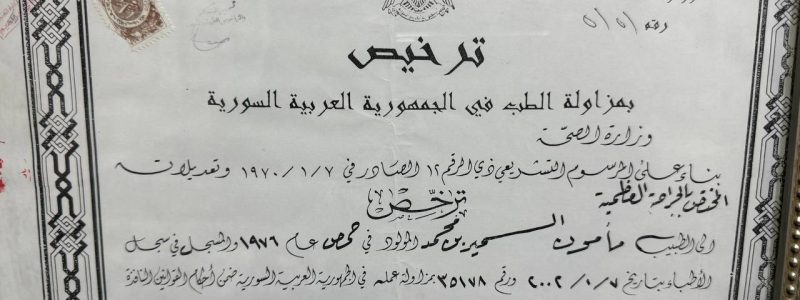 رقم ٥/٥١
ترخيص
بمزاولة الطب في الجمهورية العربية السورية
وزارة الصحة
بناء على المرسوم التشريعي ذي الرقم ١٢ الصادر في ٧/١/١٩٧٠ وتعديلاته
ترخّص المختص بالجراحة العظمية
الى الطبيب مأمون السمير بن محمد المولود في حمص عام ١٩٧٦ والمسجل في سجل
الأطباء بتاريخ ٧/١/٢٠٠٢ ورقم ٣٥١٧٨ بمزاولة عمله في الجمهورية العربية السورية ضمن أحكام القوانين النافذة